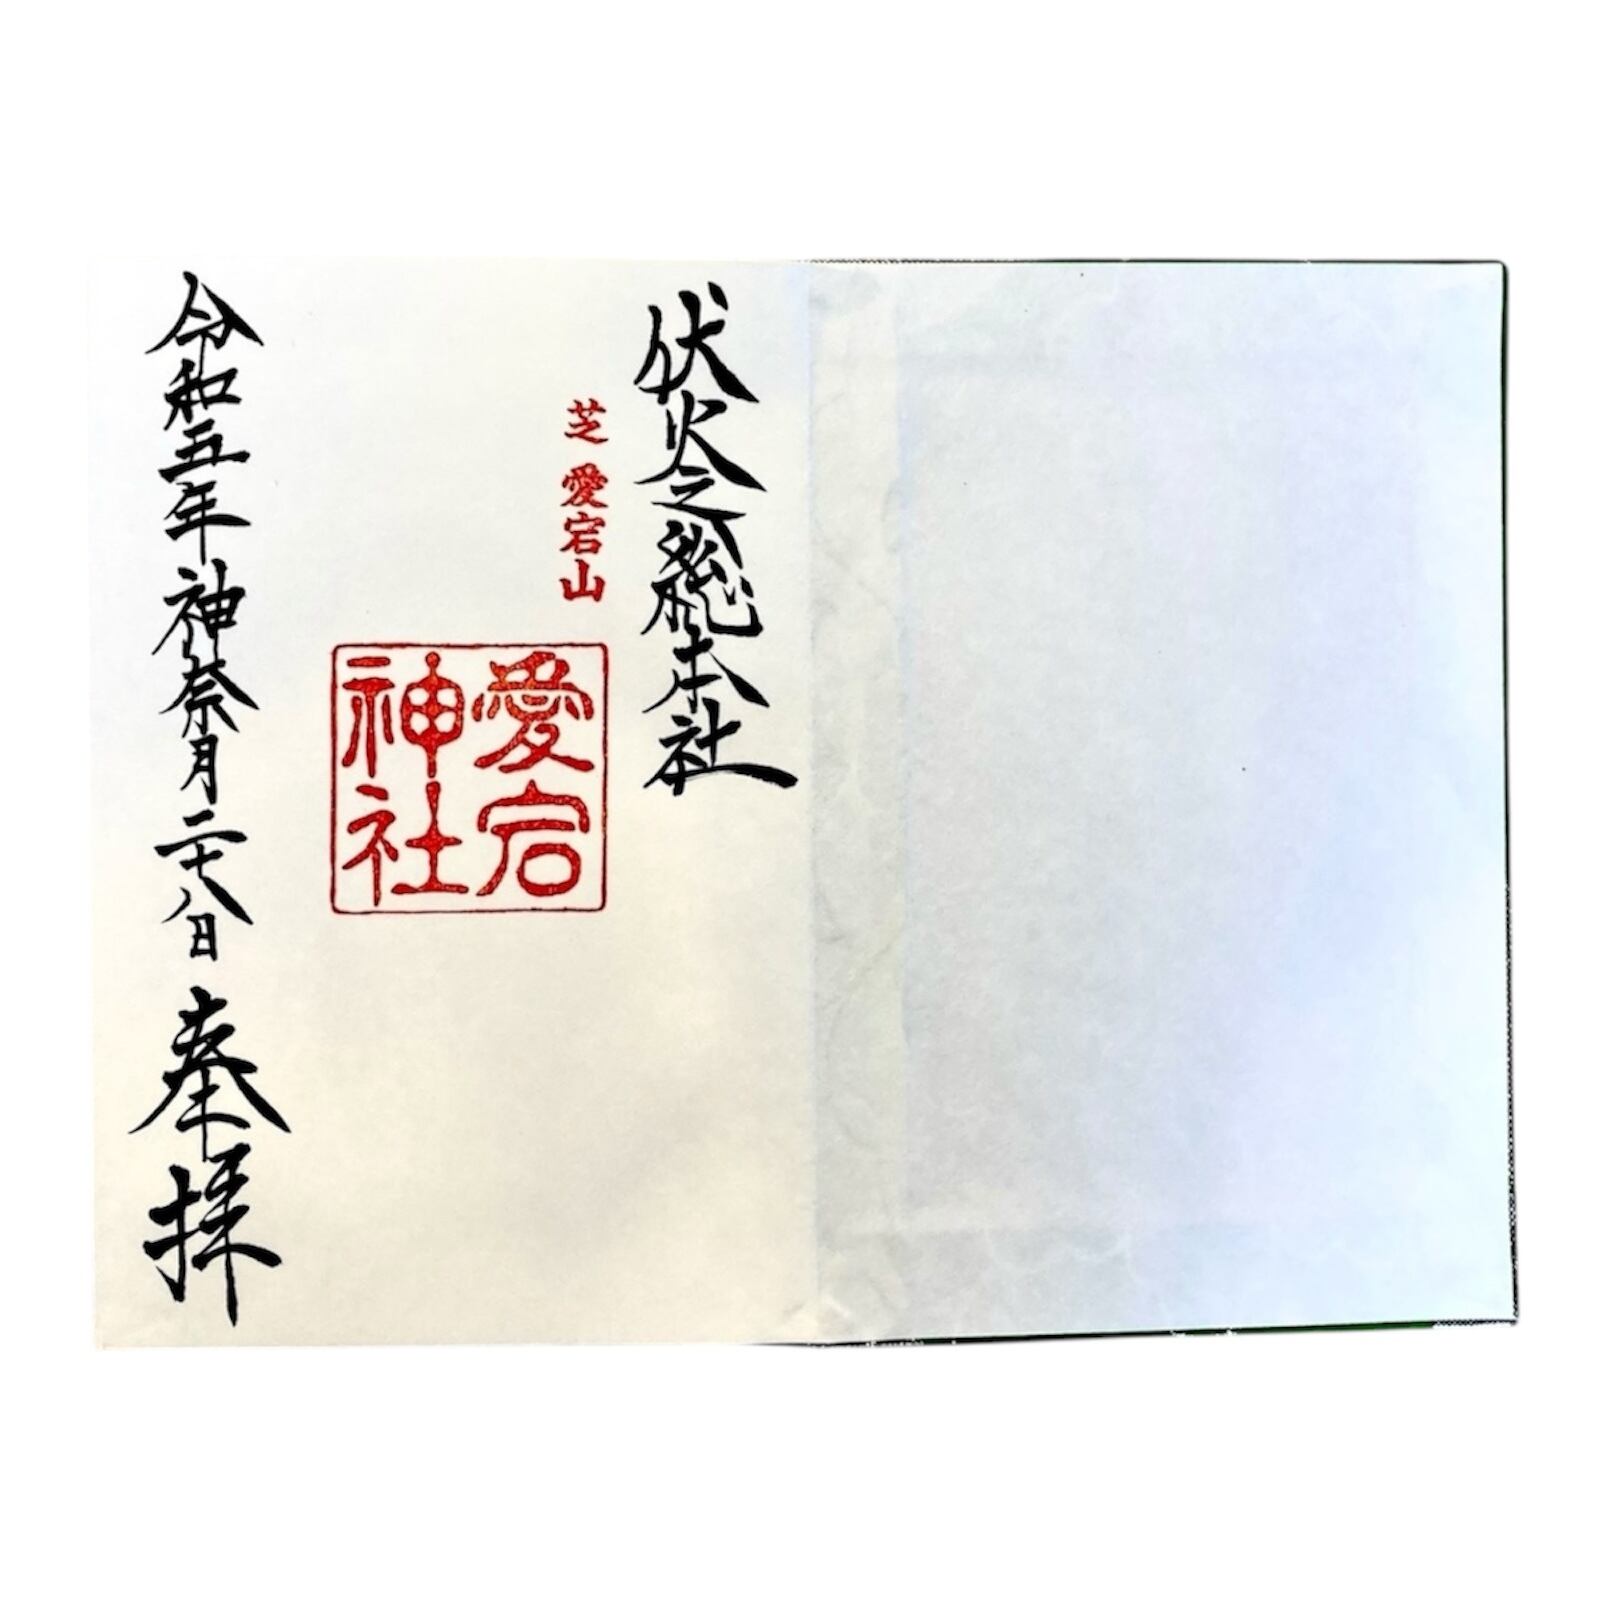 伏火之総本社
芝 愛宕山
愛宕
神社
令和五年神奈月二十八日 奉拝